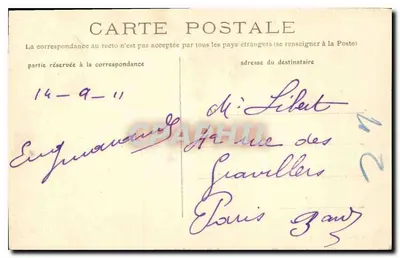 CARTE POSTALE
La correspondance au recto n'est pas acceptée par tous les pays étrangers (se renseigner à la Poste)
partie réservée à la correspondance
adresse du destinataire
14-9-11
Mr Libert
rue des
Gravilliers
Paris